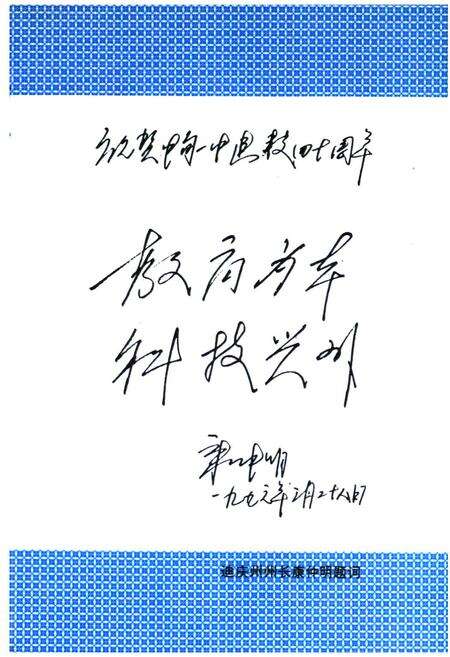 祝贺中甸一中建校四十周年
教育为本
科技兴州
康仲明
一九九六年二月二十八日
迪庆州州长康仲明题词